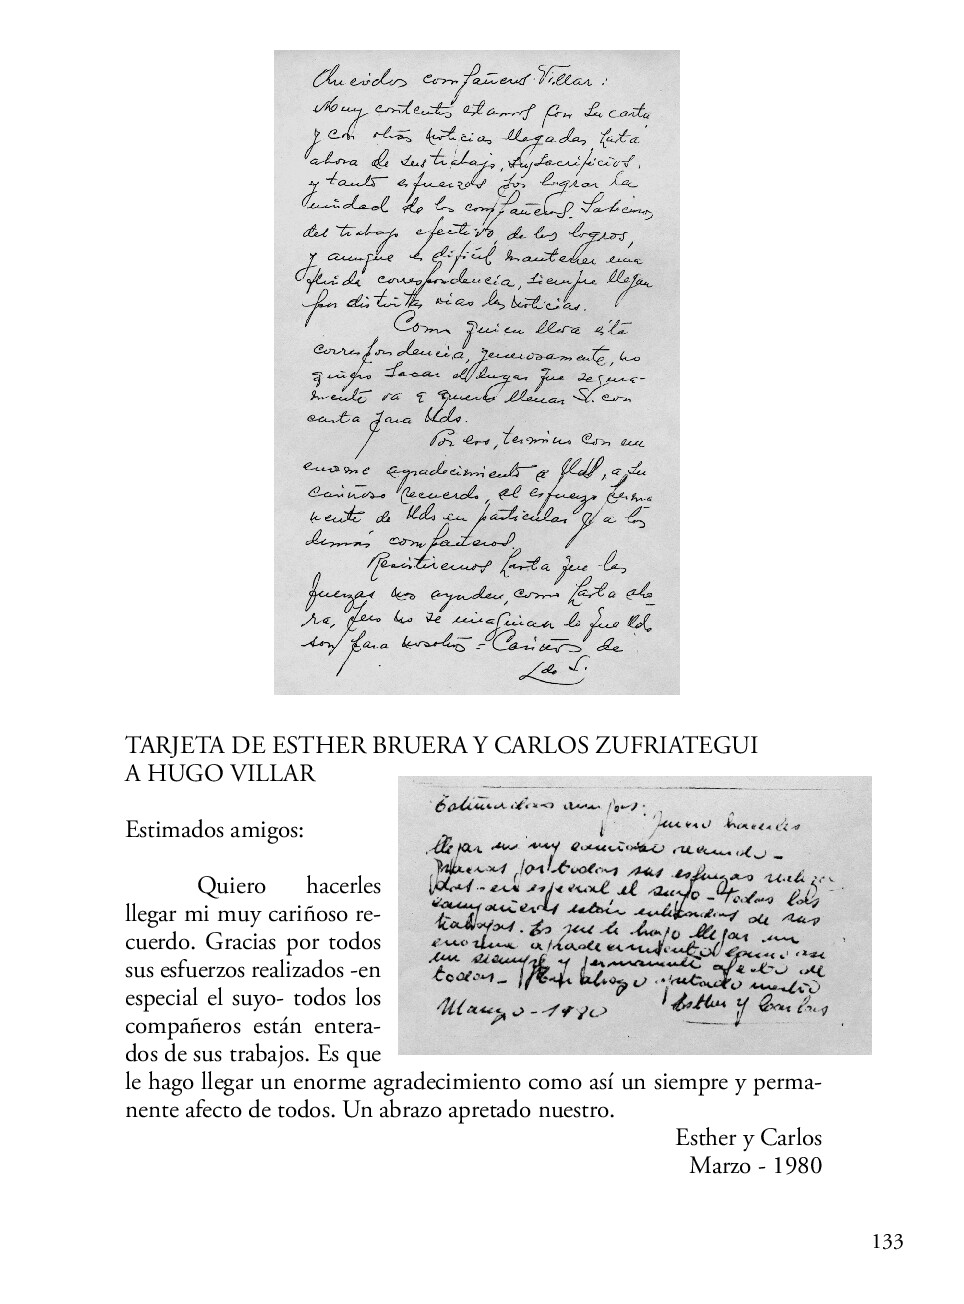 Queridos compañeros Villar:
Muy contentos estamos por su carta
y con otras noticias llegadas hasta
ahora de sus trabajo, sus sacrificios,
y tantos esfuerzos por lograr la
unidad de los compañeros. Sabemos
del trabajo efectivo, de los logros,
y aunque es difícil mantener una
fluida correspondencia, siempre llegan
por distintas vias las noticias.
Como quien lleva ésta
correspondencia, generosamente, no
quiero sacar el lugar que segura-
mente va a querer llenar S. con
carta para Uds.
Por eso, termino con un
enorme agradecimiento a Uds, a su
cariñoso recuerdo, al esfuerzo perma
nente de Uds en particular y a los
demás compañeros.
Resistiremos hasta que las
fuerzas nos ayuden, como hasta aho-
ra, pero no se imaginan lo que Uds
son para nosotros = Cariños de
TARJETA DE ESTHER BRUERA Y CARLOS ZUFRIATEGUI
A HUGO VILLAR
Estimados amigos:
Quiero hacerles
llegar mi muy cariñoso re-
cuerdo. Gracias por todos
sus esfuerzos realizados -en
especial el suyo- todos los
compañeros están entera-
dos de sus trabajos. Es que
le hago llegar un enorme agradecimiento como así un siempre y perma-
nente afecto de todos. Un abrazo apretado nuestro.
Esther y Carlos
Marzo - 1980
Estimados amigos:
Quiero hacerles
llegar mi muy cariñoso recuerdo -
Gracias por todos sus esfuerzos realiza-
dos - en especial el suyo - todos los
compañeros están enterados de sus
trabajos. Es que le hago llegar un
enorme agradecimiento como así
un siempre y permanente afecto de
todos - Un abrazo apretado nuestro
Marzo - 1980 Esther y Carlos
133